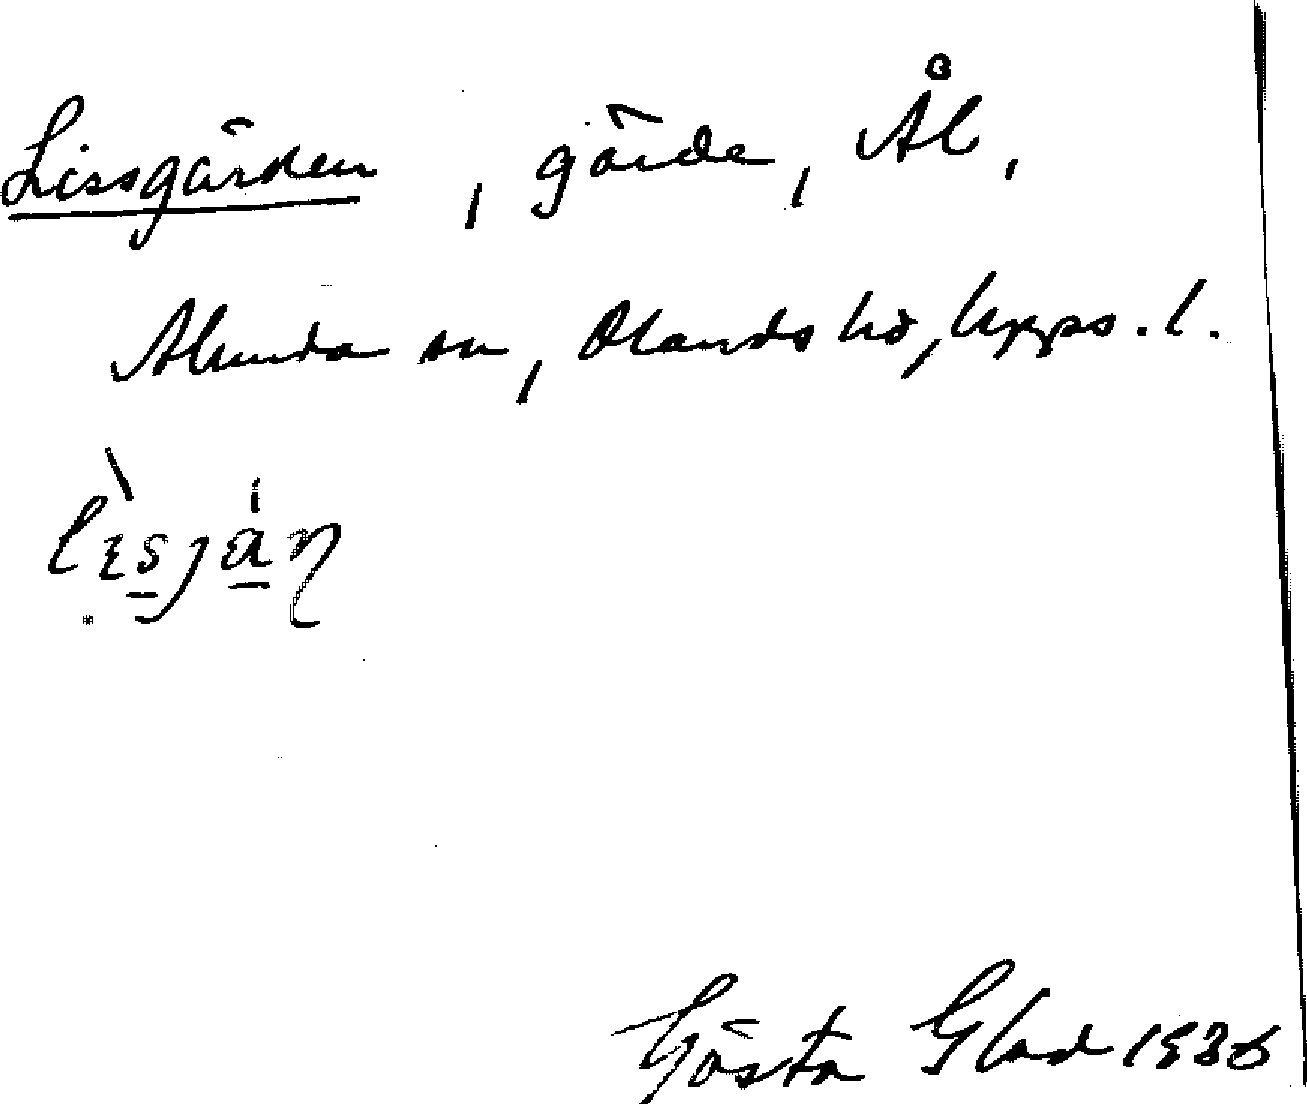 Lissgärden, gärde, Ål,
Alunda sn, Olands hd, Upps. l.
Gösta Glad 1936